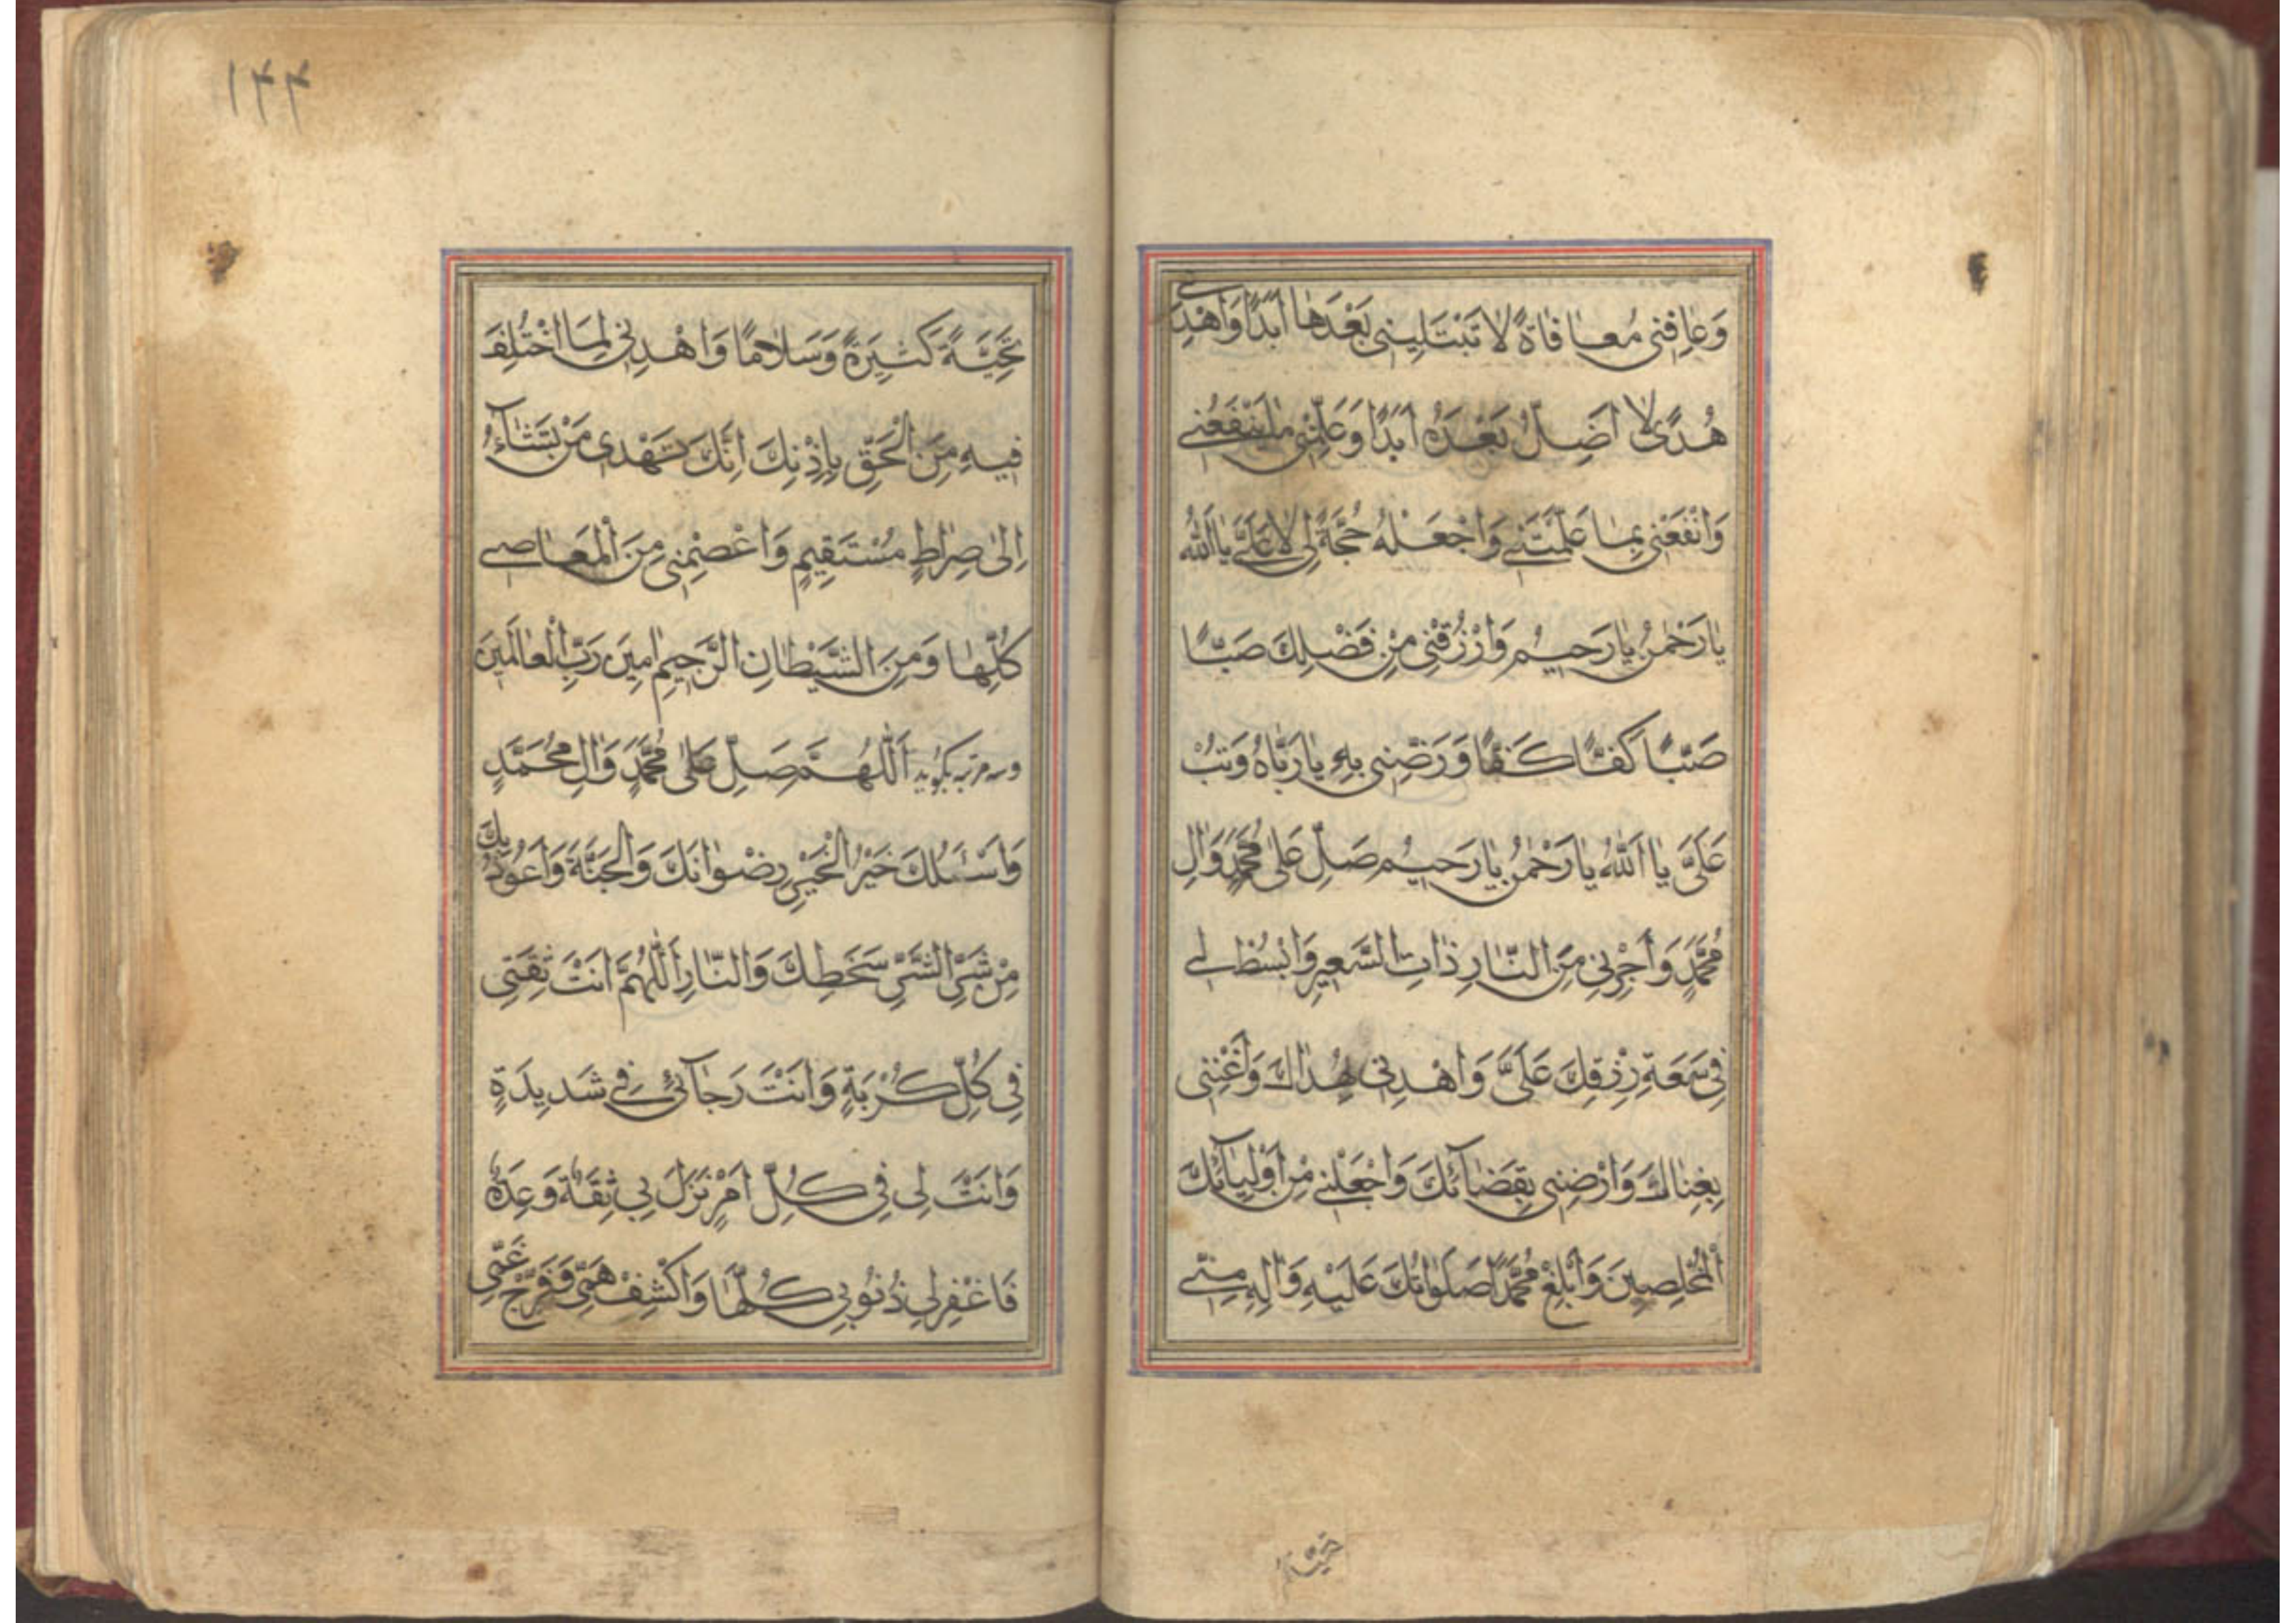 وَعٰافِنى مُعٰافٰاةً لا تَبْتَلِينى بَعْدَهٰا اَبَدًا وَاهْدِنى
هُدًى لا اَضِلُّ بَعْدَهُ اَبَدًا وَعَلِّمْنى مٰا يَنْفَعُنى
وَانْفَعْنى بِمٰا عَلَّمْتَنى وَاجْعَلْهُ حُجَّةً لى لا عَلَىَّ يٰا اَللّٰهُ
يٰا رَحْمٰنُ يٰا رَحيمُ وَارْزُقْنى مِنْ فَضْلِكَ صَبًّا
صَبًّا كَفٰافًا وَرَضِّنى بِهِ يٰا رَبّٰاهُ وَتُبْ
عَلَىَّ يٰا اَللّٰهُ يٰا رَحْمٰنُ يٰا رَحيمُ صَلِّ عَلى مُحَمَّدٍ وَاٰلِ
مُحَمَّدٍ وَاَجِرْنى مِنَ النّٰارِ ذٰاتِ السَّعيرِ وَابْسُطْ لى
فى سَعَةِ رِزْقِكَ عَلَىَّ وَاهْدِنى بِهُدٰاكَ وَاَغْنِنى
بِغِنٰاكَ وَارْضِنى بِقَضٰآئِكَ وَاجْعَلْنى مِنْ اَوْلِيٰآئِكَ
الْمُخْلِصِينَ وَاَبْلِغْ مُحَمَّدًا صَلَوٰاتُكَ عَلَيْهِ وَاٰلِهِ مِنّى
تحية
١٢٢
تَحِيَّةً كَثيرَةً وَسَلامًا وَاهْدِنى لِمَا اخْتُلِفَ
فيهِ مِنَ الْحَقِّ بِاِذْنِكَ اِنَّكَ تَهْدى مَنْ تَشٰآءُ
اِلىٰ صِرٰاطٍ مُسْتَقيمٍ وَاعْصِمْنى مِنَ الْمَعٰاصى
كُلِّهٰا وَمِنَ الشَّيْطٰانِ الرَّجيمِ اٰمينَ رَبَّ الْعٰالَمينَ
وسه مرتبه بگويد اَللّٰهُمَّ صَلِّ عَلىٰ مُحَمَّدٍ وَاٰلِ مُحَمَّدٍ
وَاَسْئَلُكَ خَيْرَ الْخَيْرِ رِضْوٰانَكَ وَالْجَنَّةَ وَاَعُوذُ بِكَ
مِنْ شَرِّ الشَّرِّ سَخَطِكَ وَالنّٰارِ اَللّٰهُمَّ اَنْتَ ثِقَتى
فى كُلِّ كُرْبَةٍ وَاَنْتَ رَجٰآئى فى شَديدَةٍ
وَاَنْتَ لى فى كُلِّ اَمْرٍ نَزَلَ بى ثِقَةٌ وَعِدَةٌ
فَاغْفِرْلى ذُنُوبى كُلَّهٰا وَاكْشِفْ هَمّى وَفَرِّجْ غَمّى